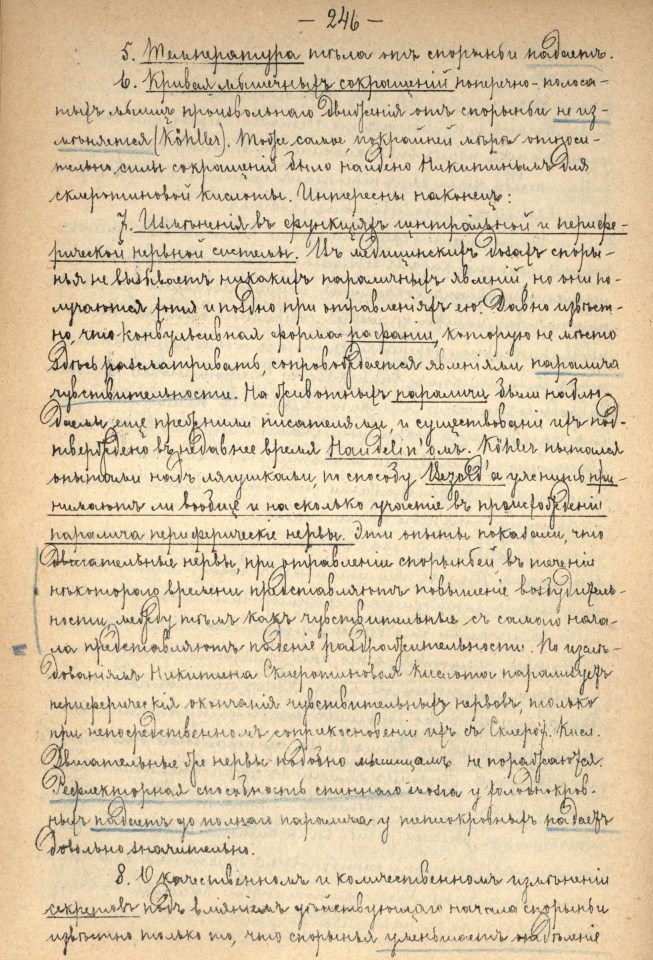 — 246 —
5. Температура тѣла отъ спорыньи падаетъ.
6. Кривая мышечныхъ сокращеній поперечно-полоса-
тыхъ мышцъ произвольнаго движенія отъ спорыньи не из-
мѣняется (Köhler). Тоже самое, покрайней мѣрѣ относи-
тельно силы сокращеній было найдено Никитинымъ для
склеротиновой кислоты. Интересны наконецъ:
7. Измѣненія въ функціяхъ центральной и перифе-
рической нервной системы. Въ медицинскихъ дозахъ споры-
нья не вызываетъ никакихъ параличныхъ явленій, но они по-
лучаются хотя и поздно при отравленіяхъ ею. Давно извѣст-
но, что конвульсивная форма рафаніи, которую не мѣсто
здѣсь разсматривать, сопровождается явленіями паралича
чувствительности. На животныхъ параличи были наблю-
даемы еще прежними писателями, и существованіе ихъ под-
тверждено въ недавнее время Haudelin'омъ. Köhler пытался
опытами надъ лягушками, по способу Bezold'а уяснить при-
нимаютъ ли вообще и на сколько участіе въ происхожденіи
паралича периферическіе нервы. Эти опыты показали, что
двигательные нервы, при отравленіи спорыньей въ теченіи
нѣкотораго времени представляютъ повышеніе возбудитель-
ности, между тѣмъ какъ чувствительные съ самаго нача-
ла представляютъ паденіе раздражительности. По изслѣ-
дованіямъ Никитина Склеротиновая Кислота парализуетъ
периферическія окончанія чувствительныхъ нервовъ, только
при непосредственномъ соприкосновеніи ихъ съ Склерот. Кисл.
Двигательные же нервы подобно мышцамъ не поражаются.
Рефлекторная способность спиннаго мозга у холоднокров-
ныхъ падаетъ до полнаго паралича у теплокровныхъ падаетъ
довольно значительно.
8. О качественномъ и количественномъ измѣненіи
секретовъ подъ вліяніемъ дѣйствующаго начала спорыньи
извѣстно только то, что спорынья уменьшаетъ отдѣленіе